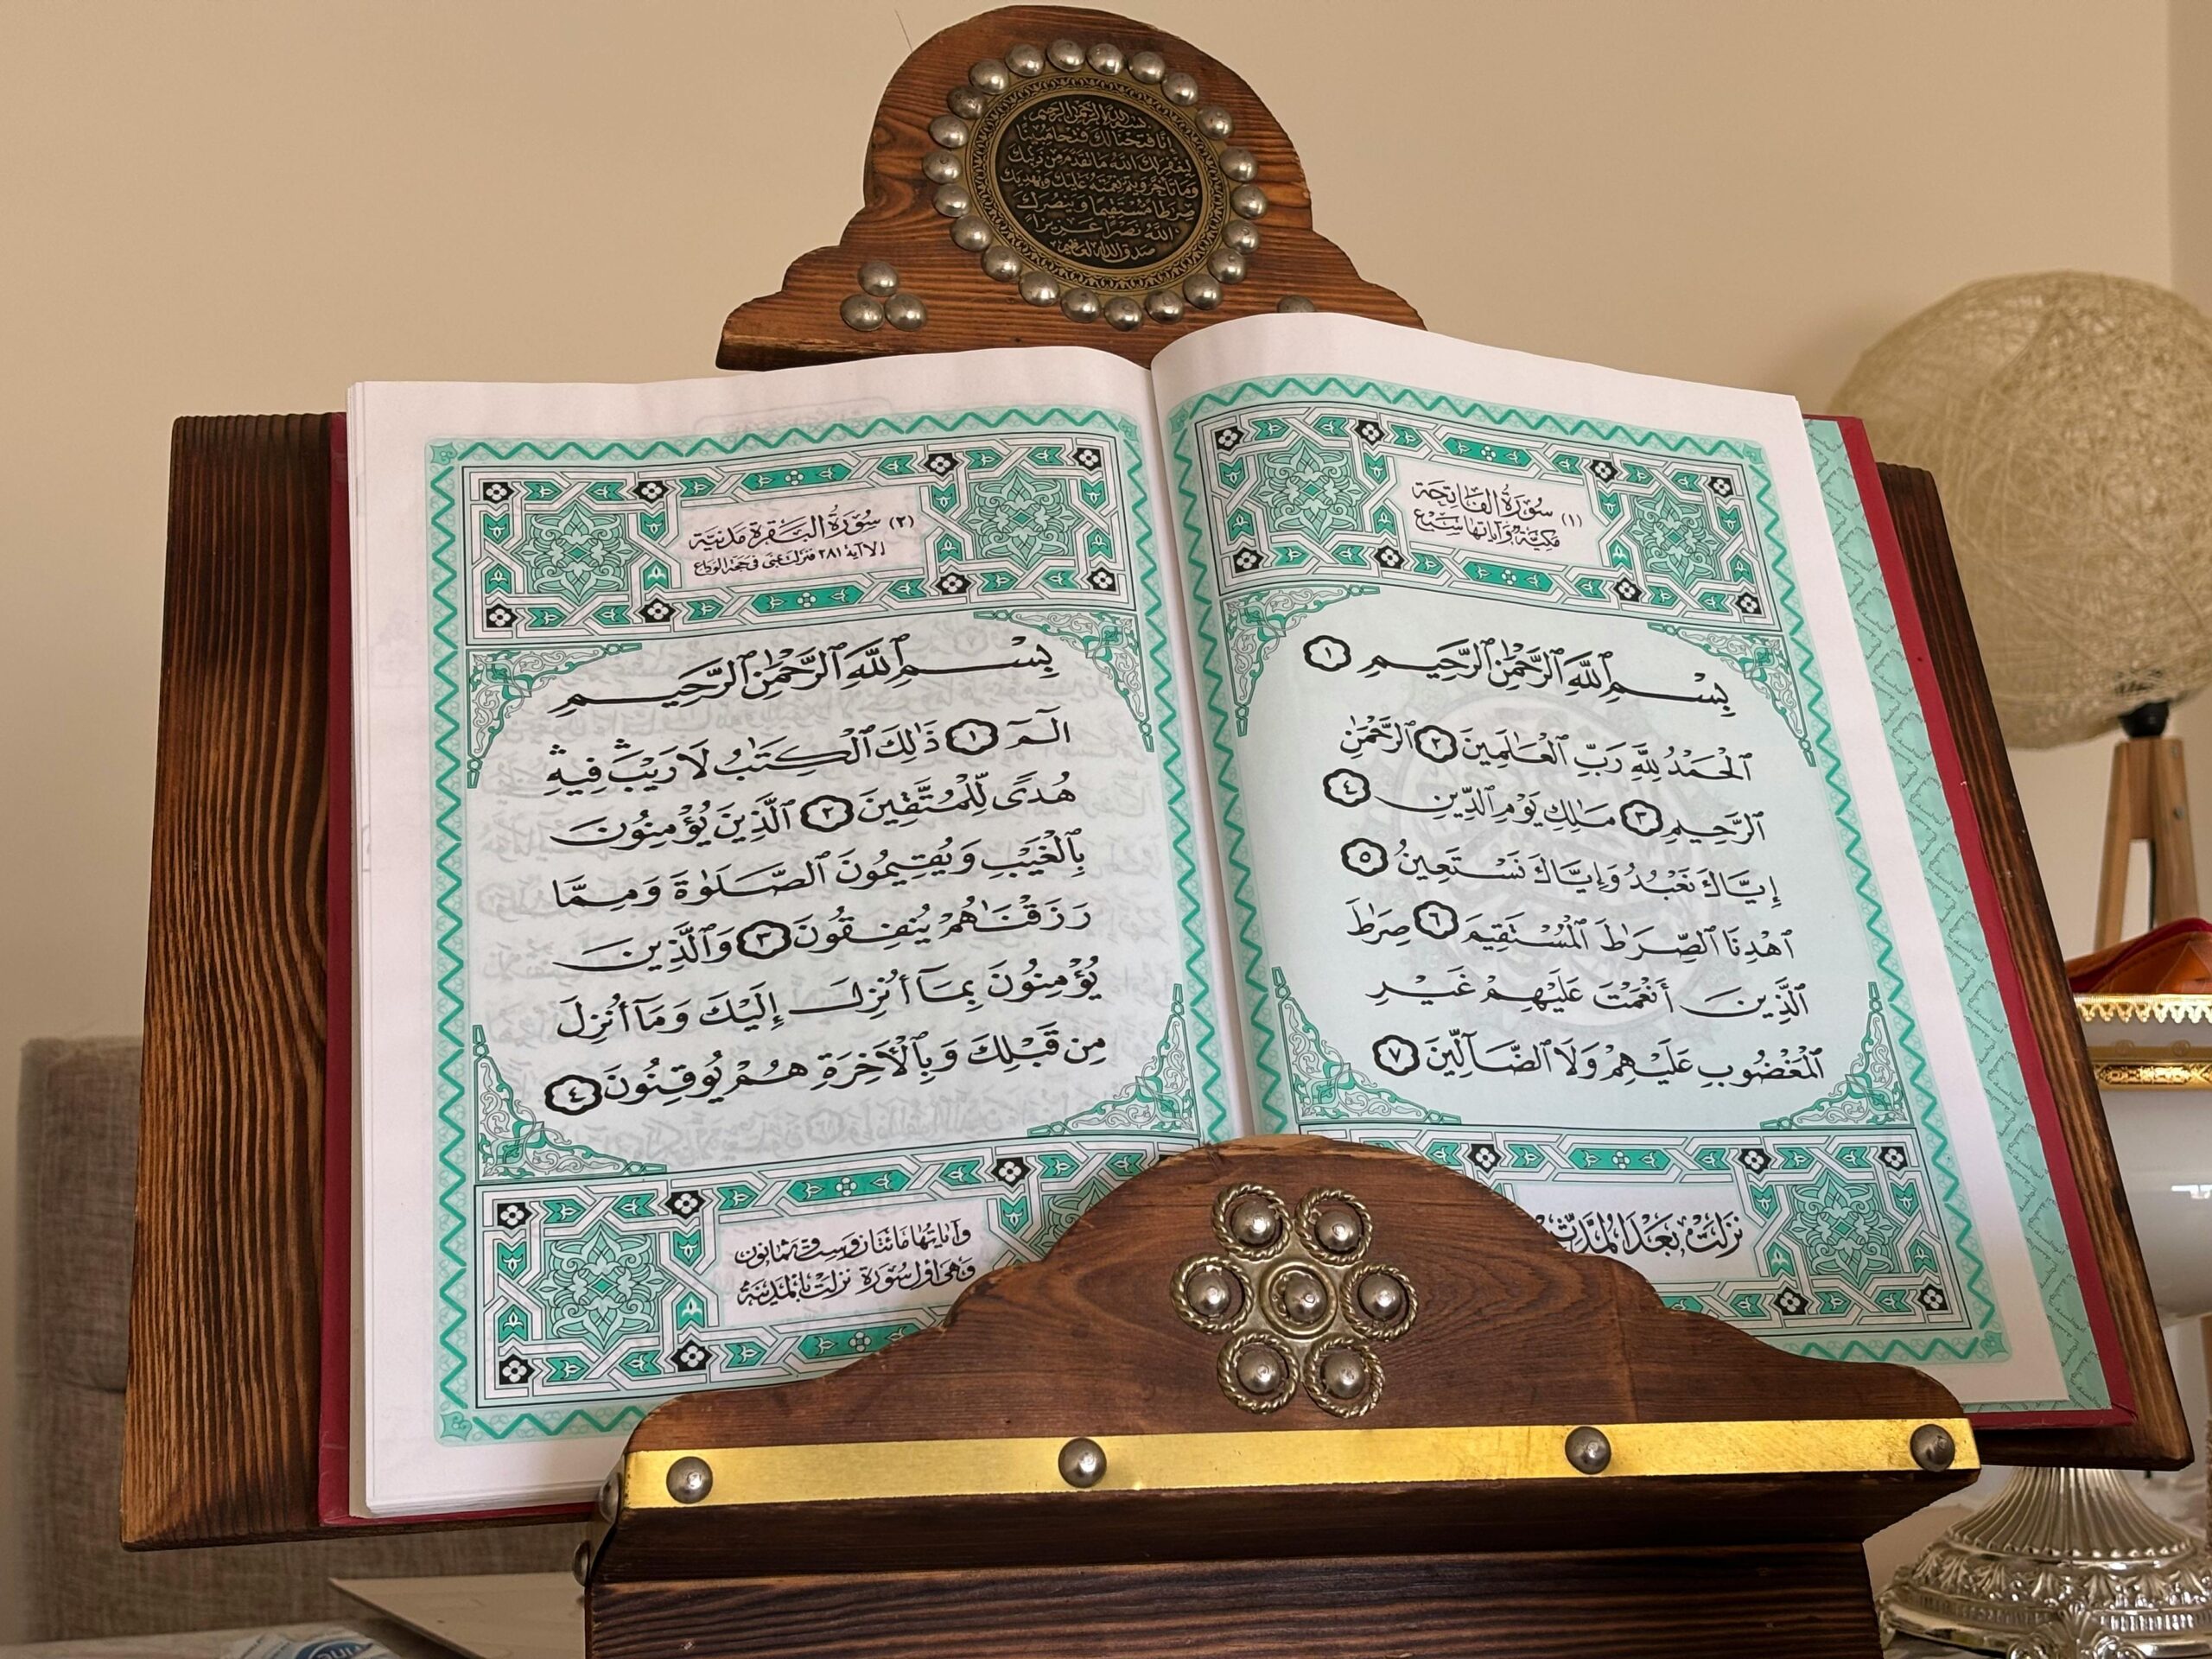 بسم الله الرحمن الرحيم
إنا فتحنا لك فتحا مبينا
ليغفر لك الله ما تقدم من ذنبك
وما تأخر ويتم نعمته عليك ويهديك
صرطا مستقيما وينصرك
الله نصرا عزيزا
صدق الله العظيم
(١) سُورَةُ الفَاتِحَة
مَكيَّة وَآيَاتهَا سَبْع
بِسْمِ ٱللَّهِ ٱلرَّحْمَٰنِ ٱلرَّحِيمِ ١
ٱلْحَمْدُ لِلَّهِ رَبِّ ٱلْعَٰلَمِينَ ٢ ٱلرَّحْمَٰنِ
ٱلرَّحِيمِ ٣ مَٰلِكِ يَوْمِ ٱلدِّينِ ٤
إِيَّاكَ نَعْبُدُ وَإِيَّاكَ نَسْتَعِينُ ٥
ٱهْدِنَا ٱلصِّرَٰطَ ٱلْمُسْتَقِيمَ ٦ صِرَٰطَ
ٱلَّذِينَ أَنْعَمْتَ عَلَيْهِمْ غَيْرِ
ٱلْمَغْضُوبِ عَلَيْهِمْ وَلَا ٱلضَّآلِّينَ ٧
نزَلَتْ بَعْدَ المدَّثِّر
(٢) سُورَةُ البَقَرَة مَدَنيَّة
إلا آية ٢٨١ فنزلت بمنى في حجة الوداع
بِسْمِ ٱللَّهِ ٱلرَّحْمَٰنِ ٱلرَّحِيمِ
الٓمٓ ١ ذَٰلِكَ ٱلْكِتَٰبُ لَا رَيْبَ ۛ فِيهِ ۛ
هُدًى لِّلْمُتَّقِينَ ٢ ٱلَّذِينَ يُؤْمِنُونَ
بِٱلْغَيْبِ وَيُقِيمُونَ ٱلصَّلَوٰةَ وَمِمَّا
رَزَقْنَٰهُمْ يُنفِقُونَ ٣ وَٱلَّذِينَ
يُؤْمِنُونَ بِمَآ أُنزِلَ إِلَيْكَ وَمَآ أُنزِلَ
مِن قَبْلِكَ وَبِٱلْأَخِرَةِ هُمْ يُوقِنُونَ ٤
وآياتها مائتان وست وثمانون
وهي أول سورة نزلت بالمدينة